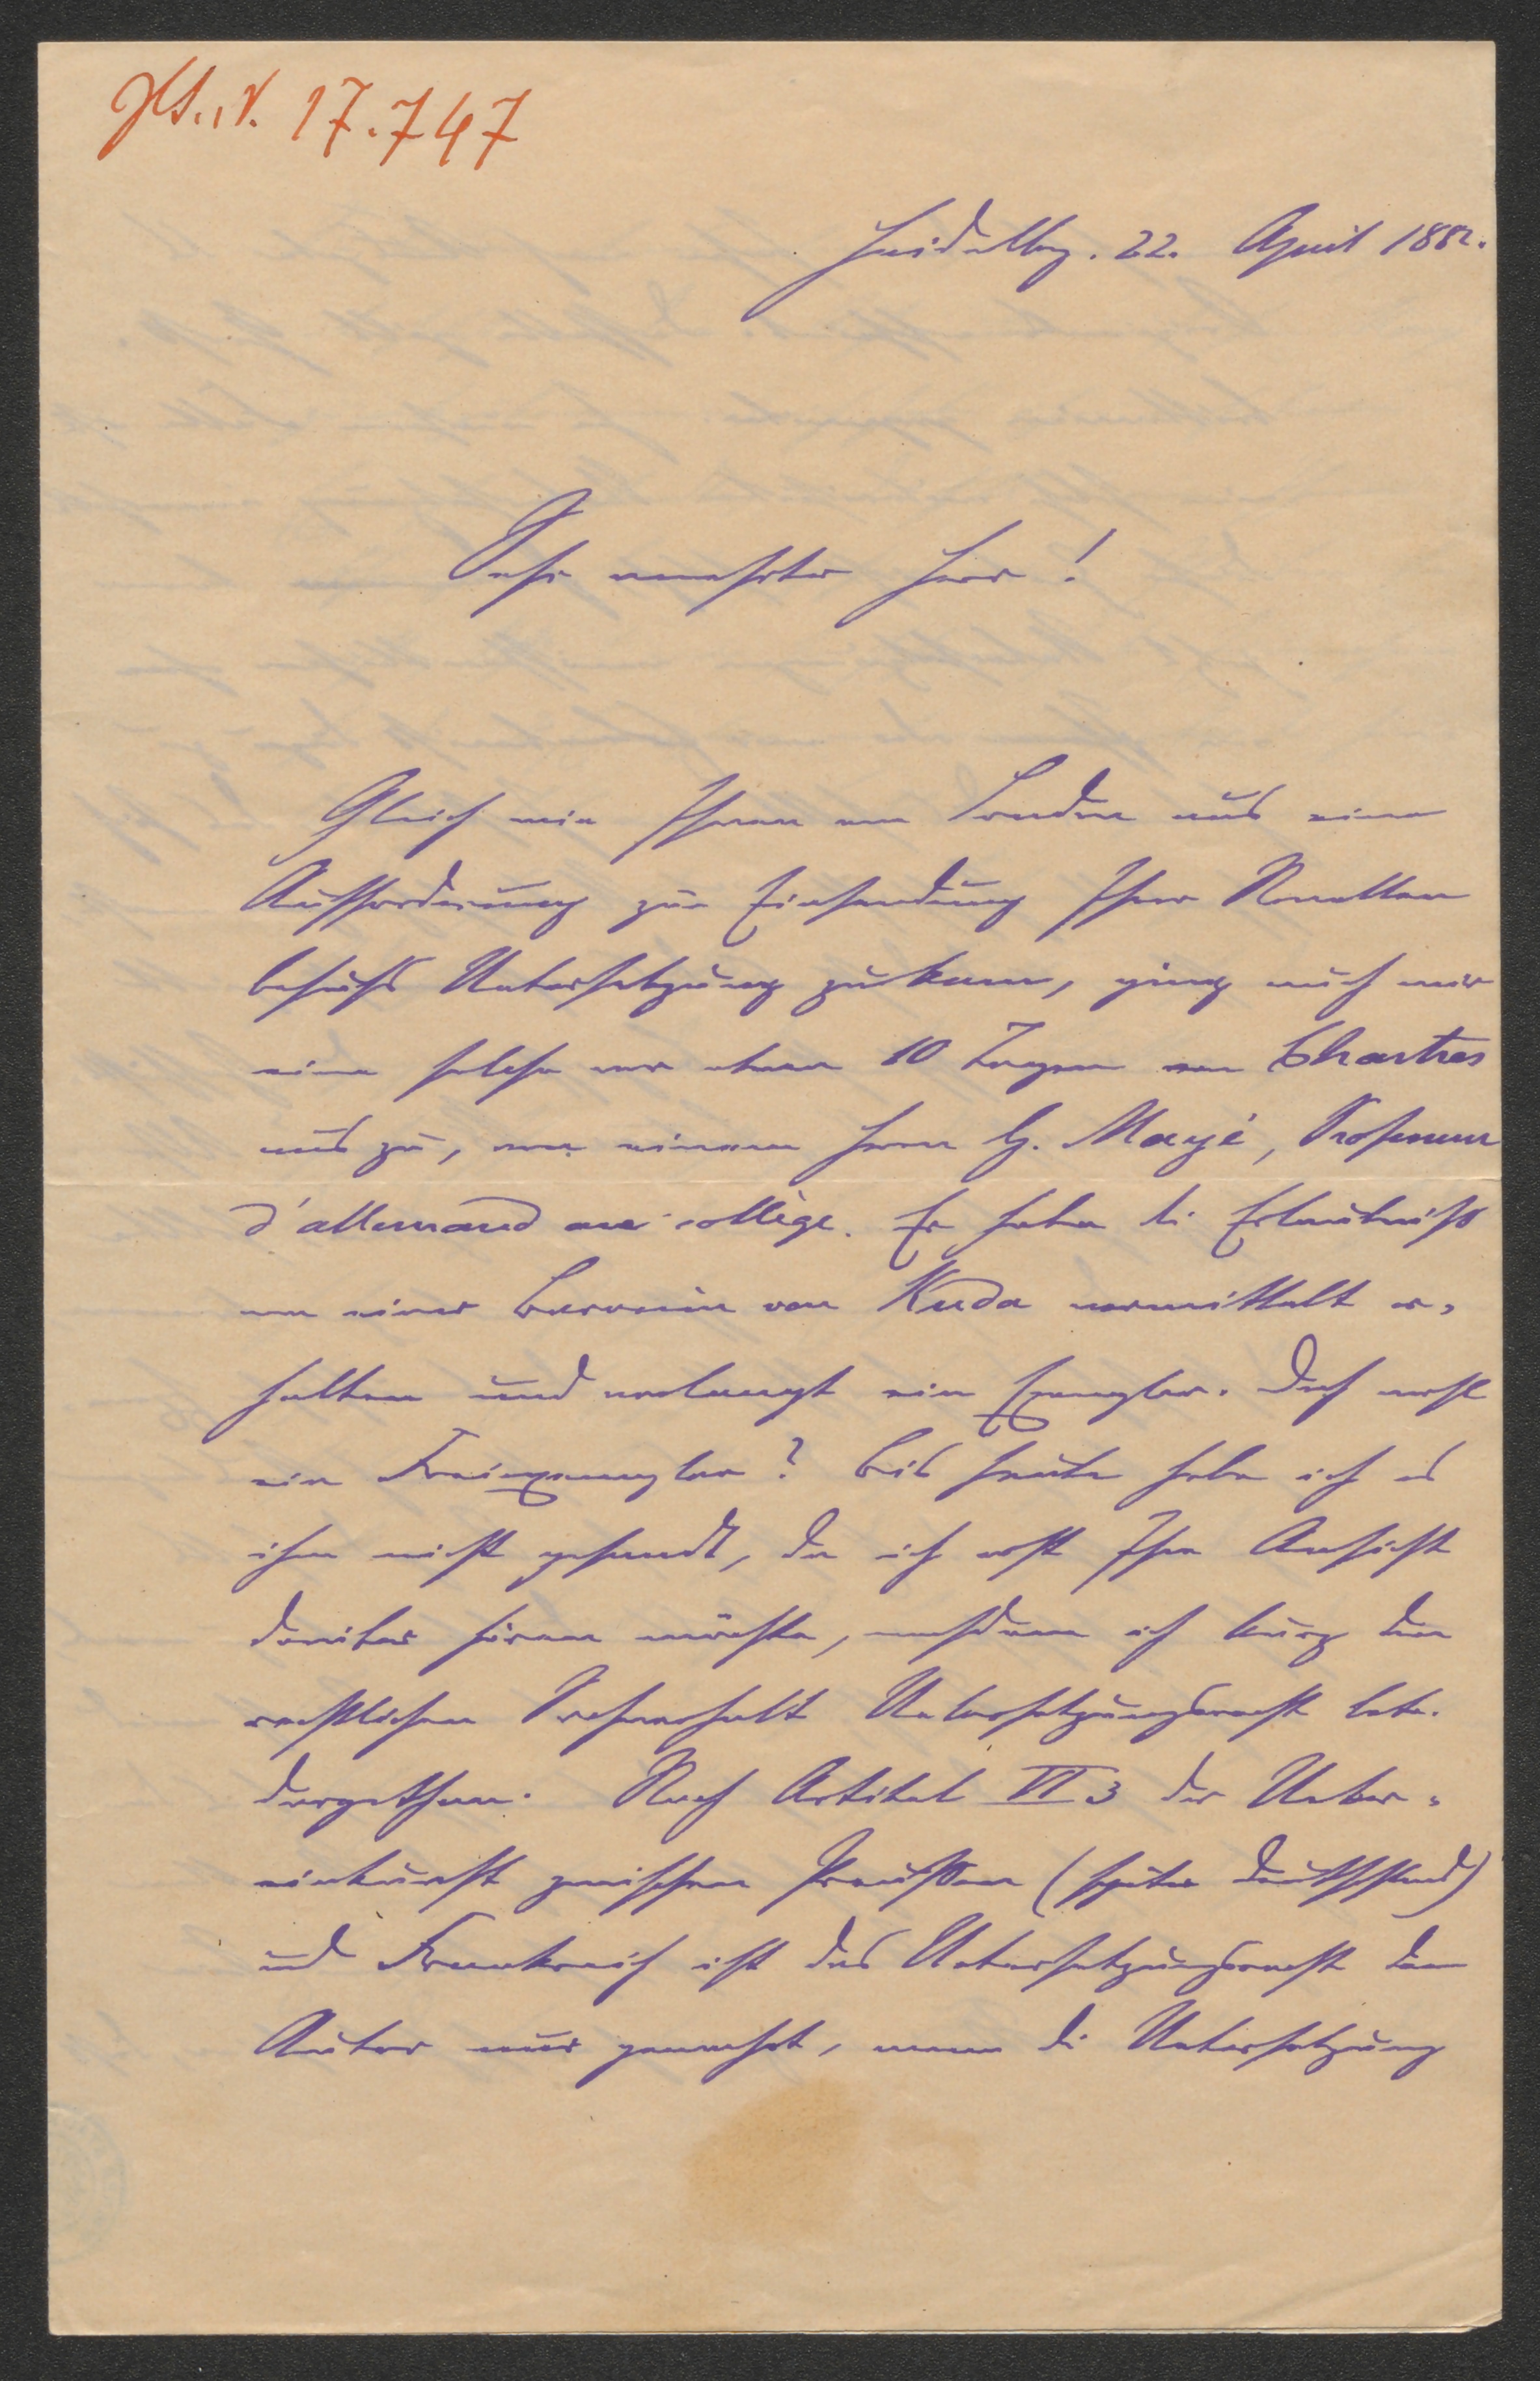 J.N. 17.747
Heidelbg. 22. April 1882.
Sehr verehrter Herr!
Gleich wie Ihnen von London aus eine
Aufforderung zur Einsendung Ihrer Novellen
behufs Uebersetzung zukam, ging auch mir
eine solche vor etwa 10 Tagen von Chartres
aus zu, von einem Herrn G. Mayé, Professeur
d'allemand au collège. Er habe die Erlaubniß
von einer Baronin von Kuda vermittelt er-
halten und verlangt ein Exemplar. Doch wohl
ein Freiexemplar? Bis heute habe ich es
ihm nicht gesandt, da ich erst Ihre Ansicht
darüber hören möchte, nachdem ich kurz den
rechtlichen Sachverhalt Uebersetzungsrecht betr.
dargethan. Nach Artikel VI 3 der Ueber-
einkunft zwischen Preußen (später Deutschland)
und Frankreich ist das Uebersetzungsrecht dem
Autor nur gewahrt, wenn die Uebersetzung